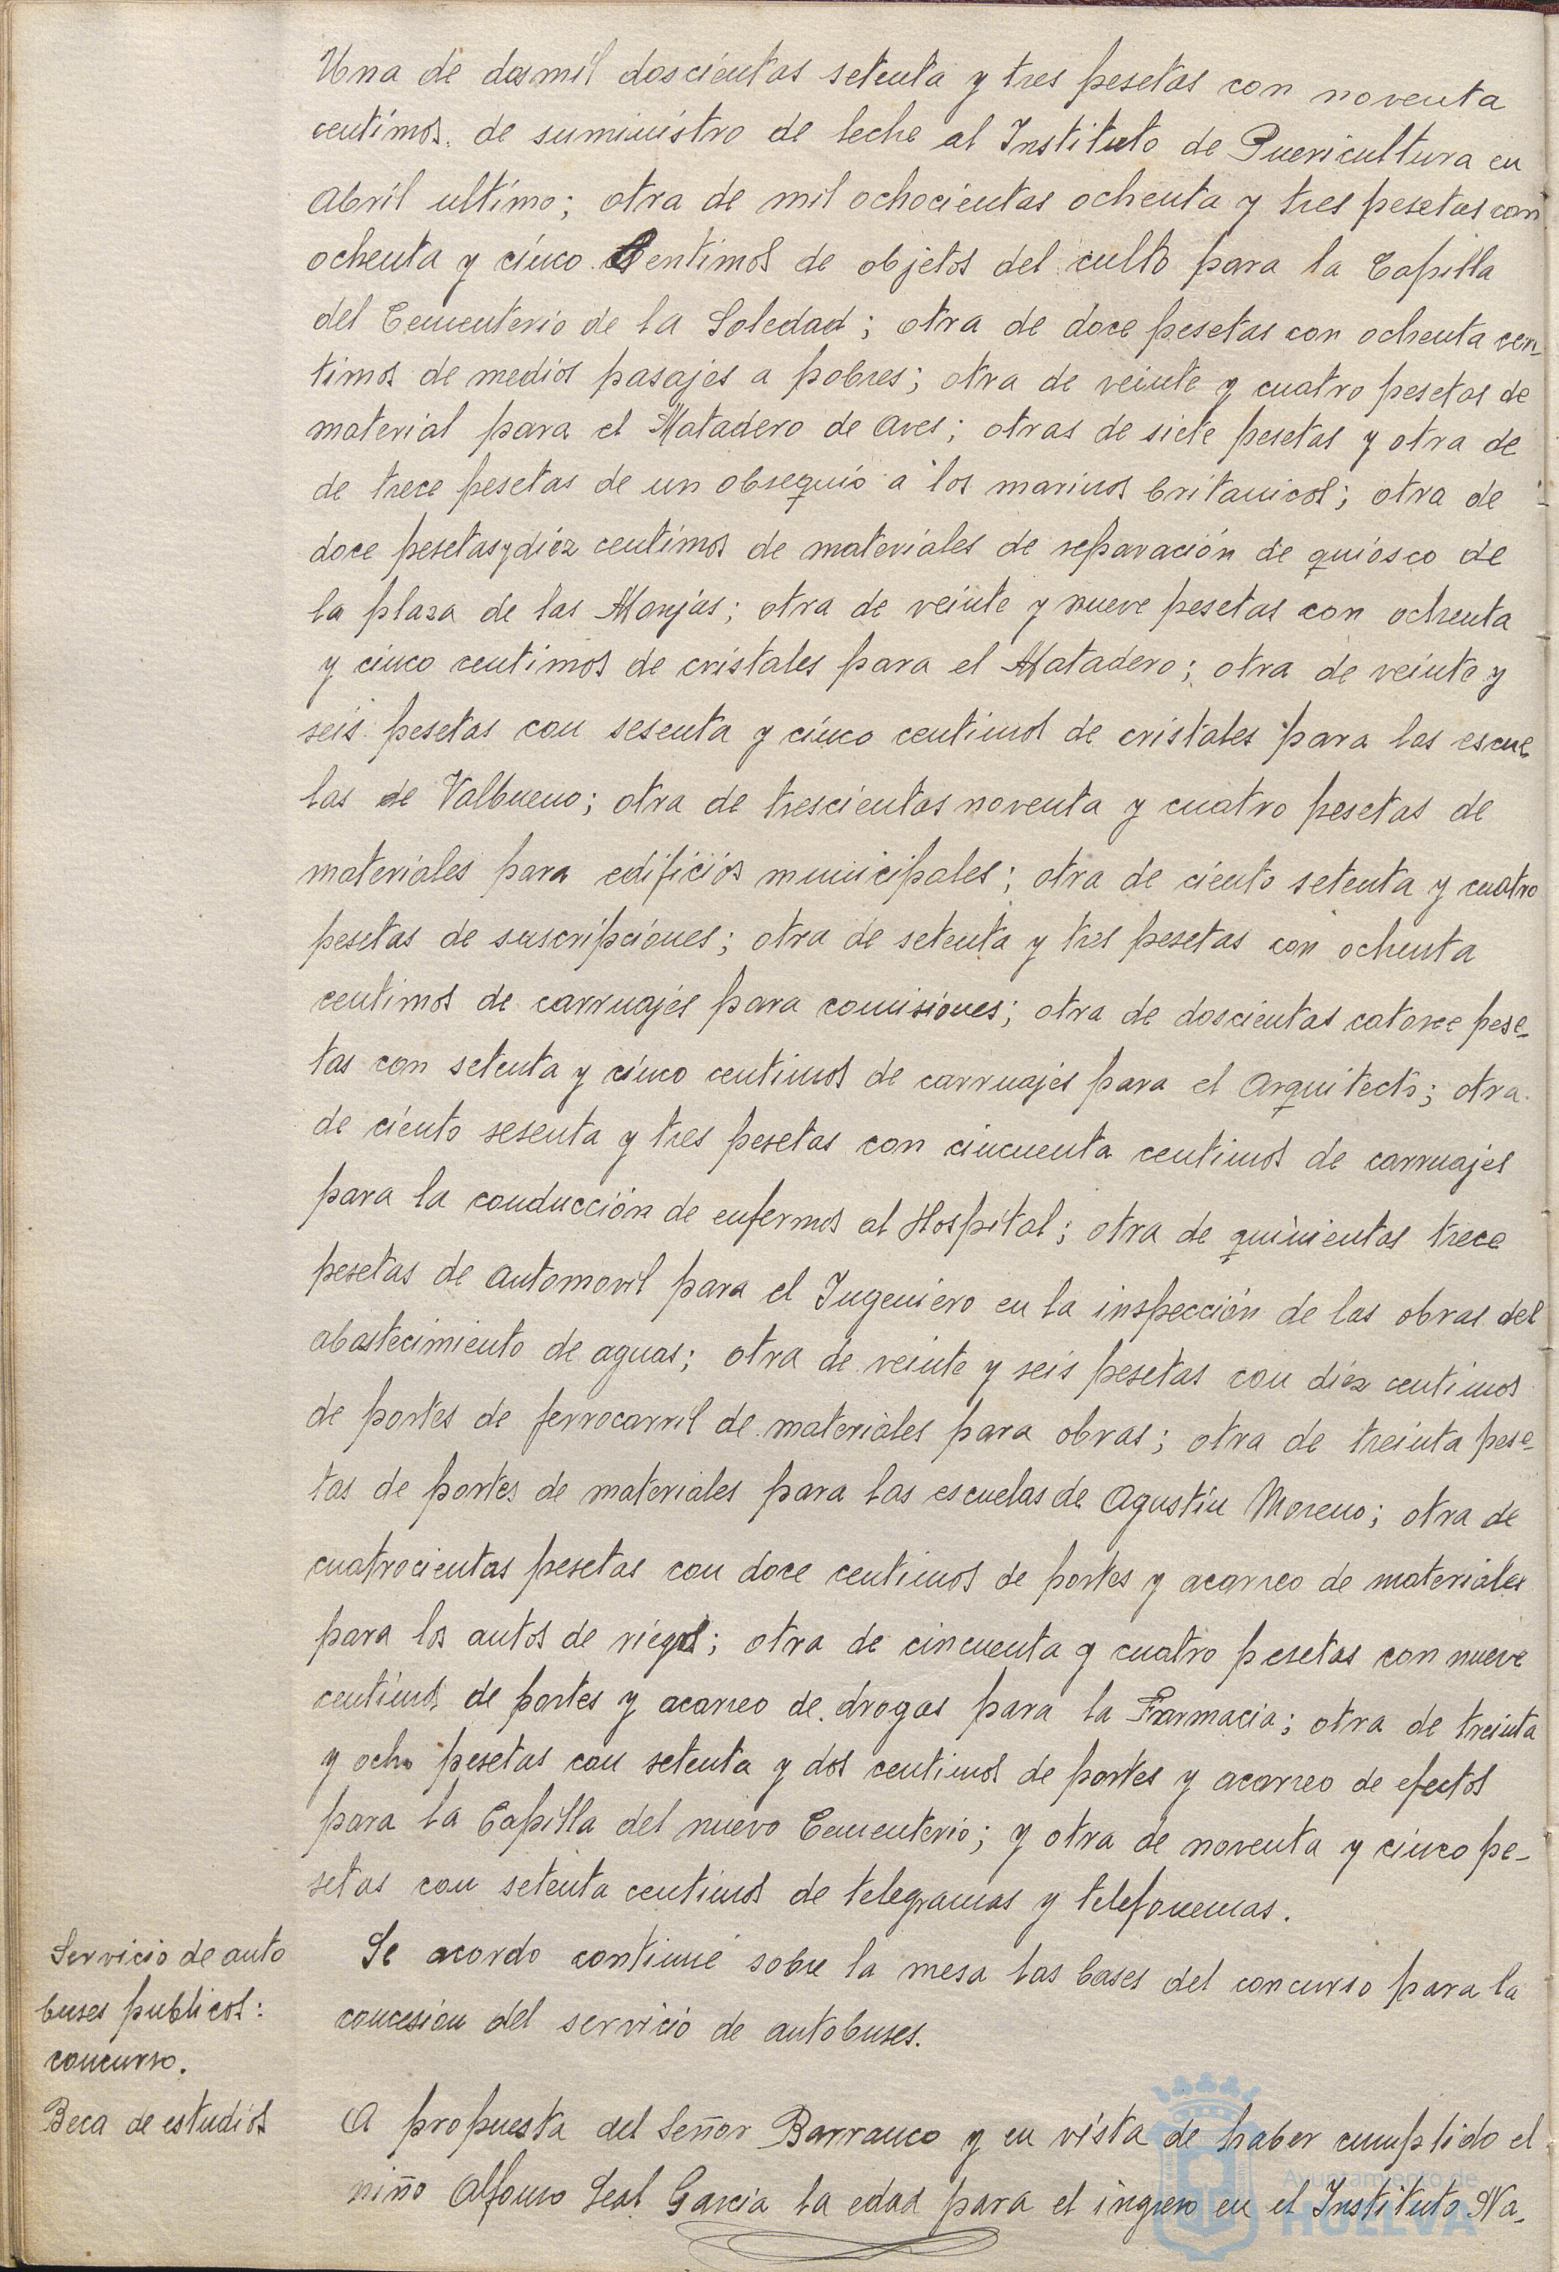 Una de dosmil doscientas setenta y tres pesetas con noventa
centimos. de suministro de leche al Instituto de Puericultura en
Abril ultimo; otra de mil ochocientas ochenta y tres pesetas con
ochenta y cinco centimos de objetos del culto para la Capilla
del Cementerio de la Soledad; otra de doce pesetas con ochenta cen-
timos de medios pasajes a pobres; otra de veinte y cuatro pesetas de
material para el Matadero de Aves; otras de siete pesetas y otra de
de trece pesetas de un obsequio a los marinos britanicos; otra de
doce pesetas y diez centimos de materiales de reparación de quiosco de
la plaza de las Monjas; otra de veinte y nueve pesetas con ochenta
y cinco centimos de cristales para el Matadero; otra de veinte y
seis pesetas con sesenta y cinco centimos de cristales para las escue-
las de Valbueno; otra de trescientas noventa y cuatro pesetas de
materiales para edificios municipales; otra de ciento setenta y cuatro
pesetas de suscripciones; otra de setenta y tres pesetas con ochenta
centimos de carruajes para comisiones; otra de doscientas catorce pese-
tas con setenta y cinco centimos de carruajes para el Arquitecto; otra
de ciento sesenta y tres pesetas con cincuenta centimos de carruajes
para la conducción de enfermos al Hospital; otra de quinientas trece
pesetas de automovil para el Ingeniero en la inspección de las obras del
abastecimiento de aguas; otra de veinte y seis pesetas con diez centimos
de portes de ferrocarril de materiales para obras; otra de treinta pese-
tas de portes de materiales para las escuelas de Agustin Moreno; otra de
cuatrocientas pesetas con doce centimos de portes y acarreo de materiales
para los autos de riegos; otra de cincuenta y cuatro pesetas con nueve
centimos de portes y acarreo de drogas para la Farmacia; otra de treinta
y ocho pesetas con setenta y dos centimos de portes y acarreo de efectos
para la Capilla del nuevo Cementerio; y otra de noventa y cinco pe-
setas con setenta centimos de telegramas y telefonemas.
Servicio de auto
buses publicos:
concurso.
Se acordo continue sobre la mesa las bases del concurso para la
concesion del servicio de autobuses.
Beca de estudios
A propuesta del Señor Barranco y en vista de haber cumplido el
niño Alfonso Leal Garcia la edad para el ingreso en el Instituto Na-
Ayuntamiento de
HUELVA